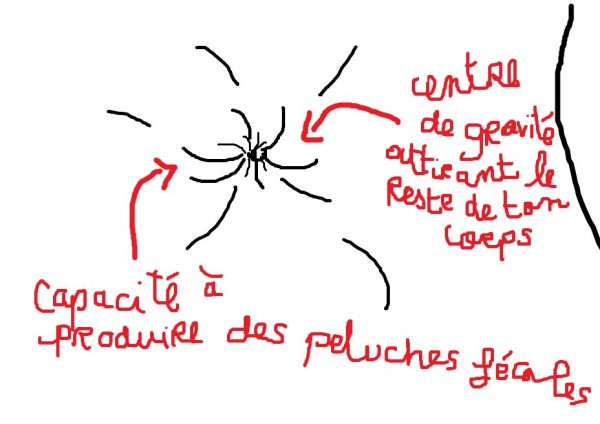 centre
de gravité
attirant le
reste de ton
corps
capacité à
produire des peluches fécales